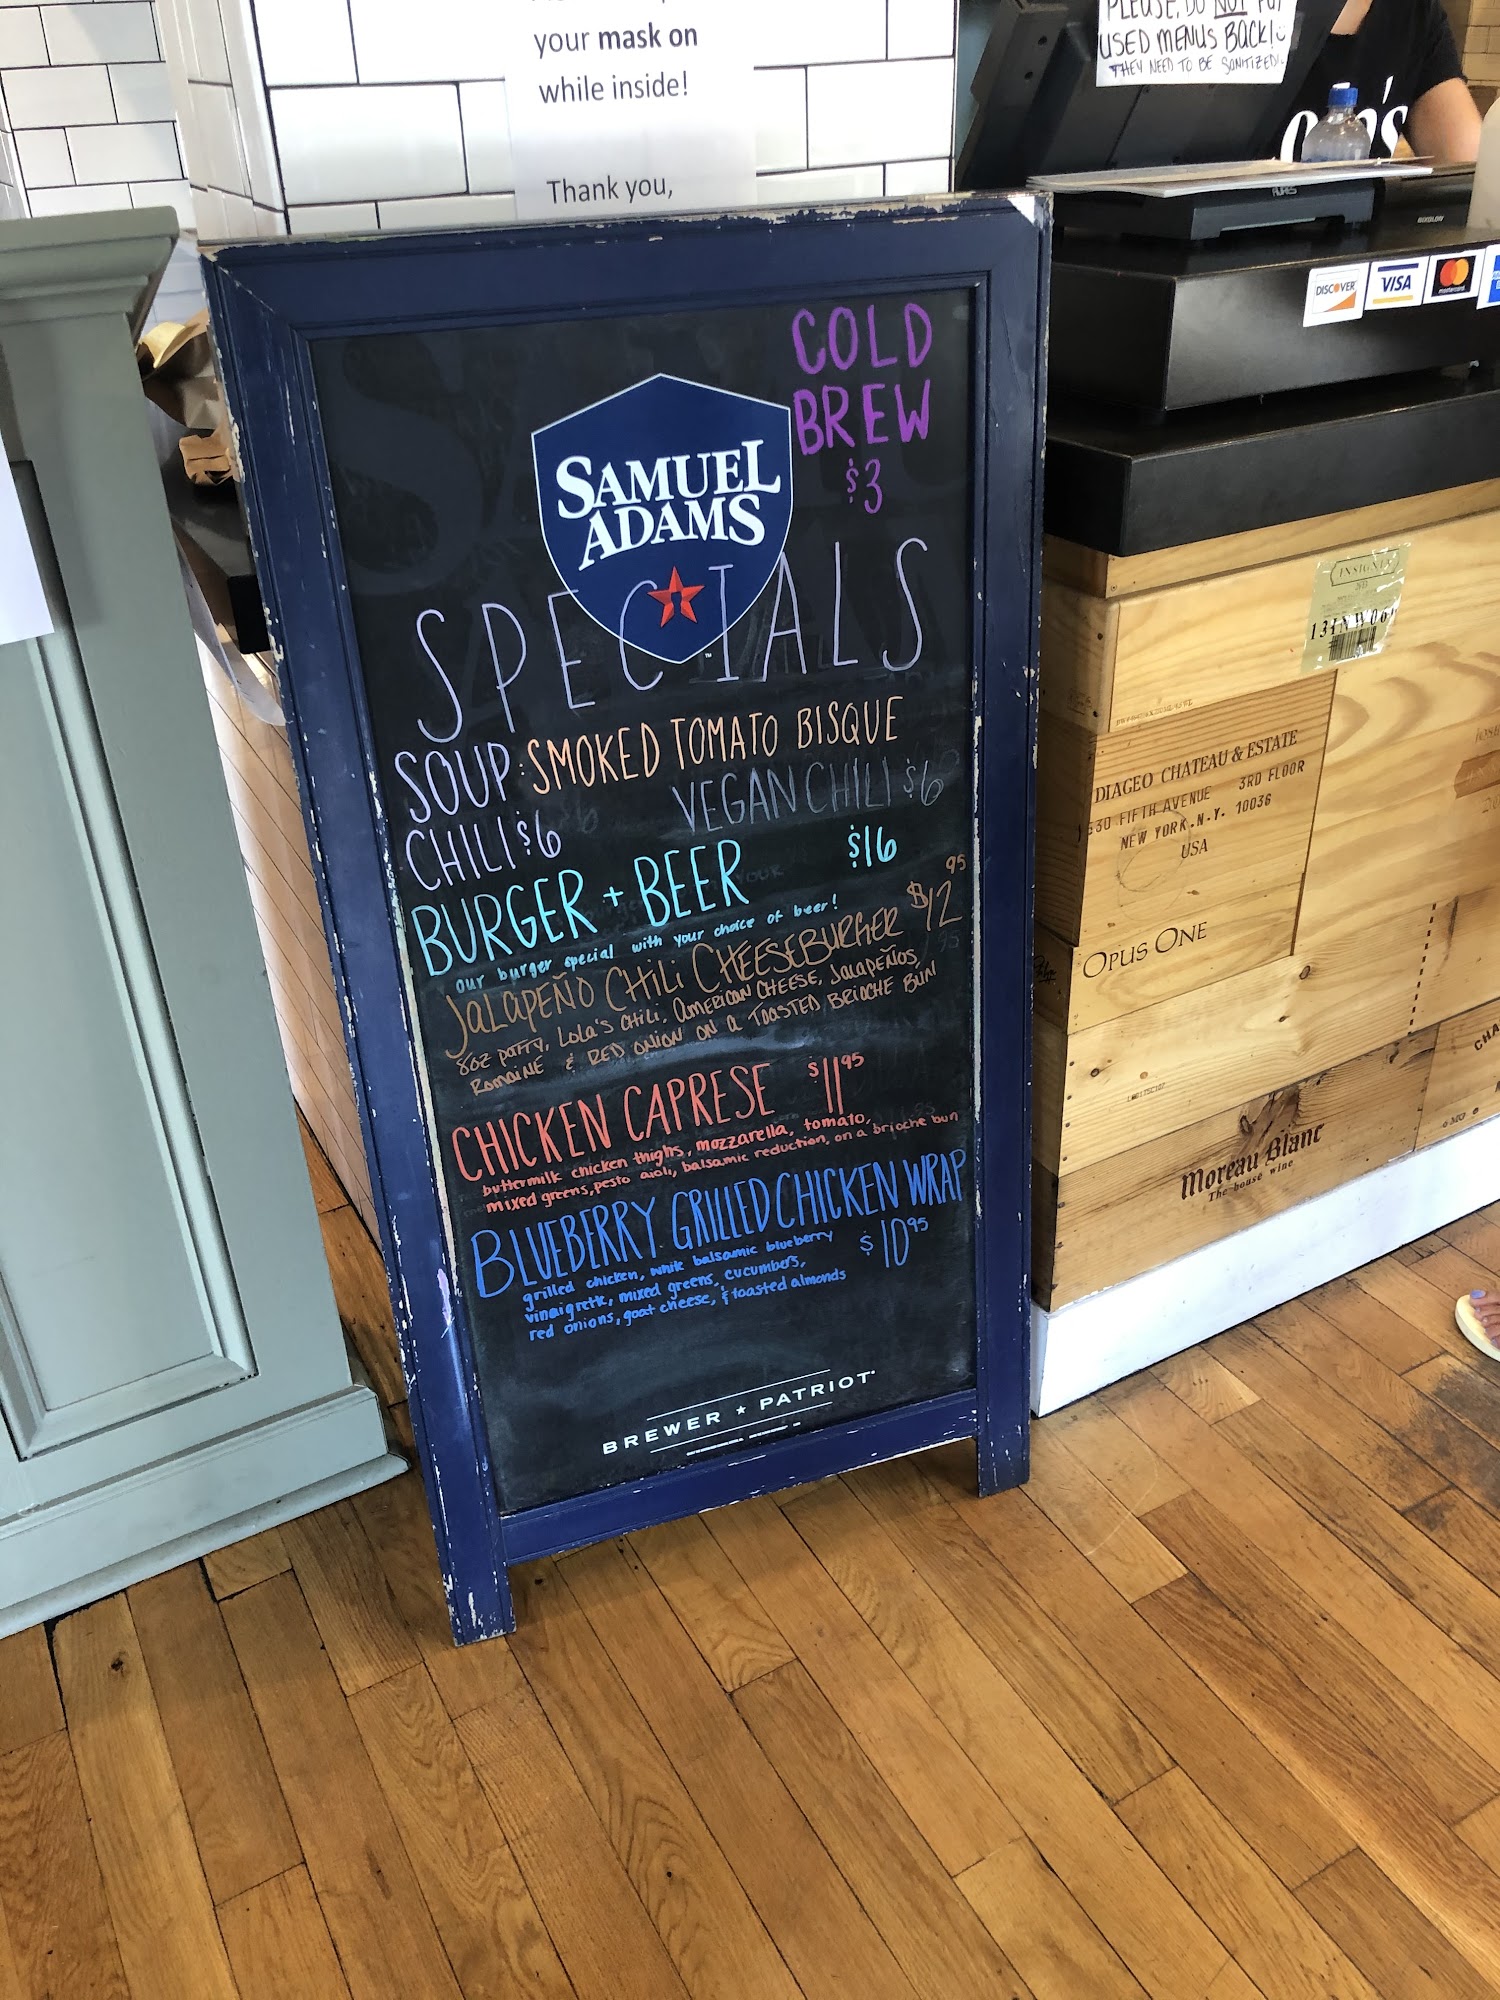 your mask on
while inside!
Thank you,
PLEASE, DO NOT PUT
USED MENUS BACK!
THEY NEED TO BE SANITIZED!
DISCOVER
VISA
mastercard
COLD
BREW
$3
SAMUEL
ADAMS
SPECIALS
SOUP: SMOKED TOMATO BISQUE
CHILI $6 VEGAN CHILI $6
BURGER + BEER $16
our burger special with your choice of beer!
JALAPEÑO CHILI CHEESEBURGER $12 95
8oz patty, Lola's chili, American cheese, jalapeños,
Romaine & Red onion on a toasted brioche bun
CHICKEN CAPRESE $11 95
buttermilk chicken thighs, mozzarella, tomato,
mixed greens, pesto aioli, balsamic reduction, on a brioche bun
BLUEBERRY GRILLED CHICKEN WRAP
$10 95
grilled chicken, white balsamic blueberry
vinaigrette, mixed greens, cucumbers,
red onions, goat cheese, & toasted almonds
BREWER ★ PATRIOT
INSIGNIA
DIAGEO CHATEAU & ESTATE
FIFTH AVENUE 3RD FLOOR
NEW YORK.N.Y. 10036
USA
OPUS ONE
Moreau Blanc
The house wine